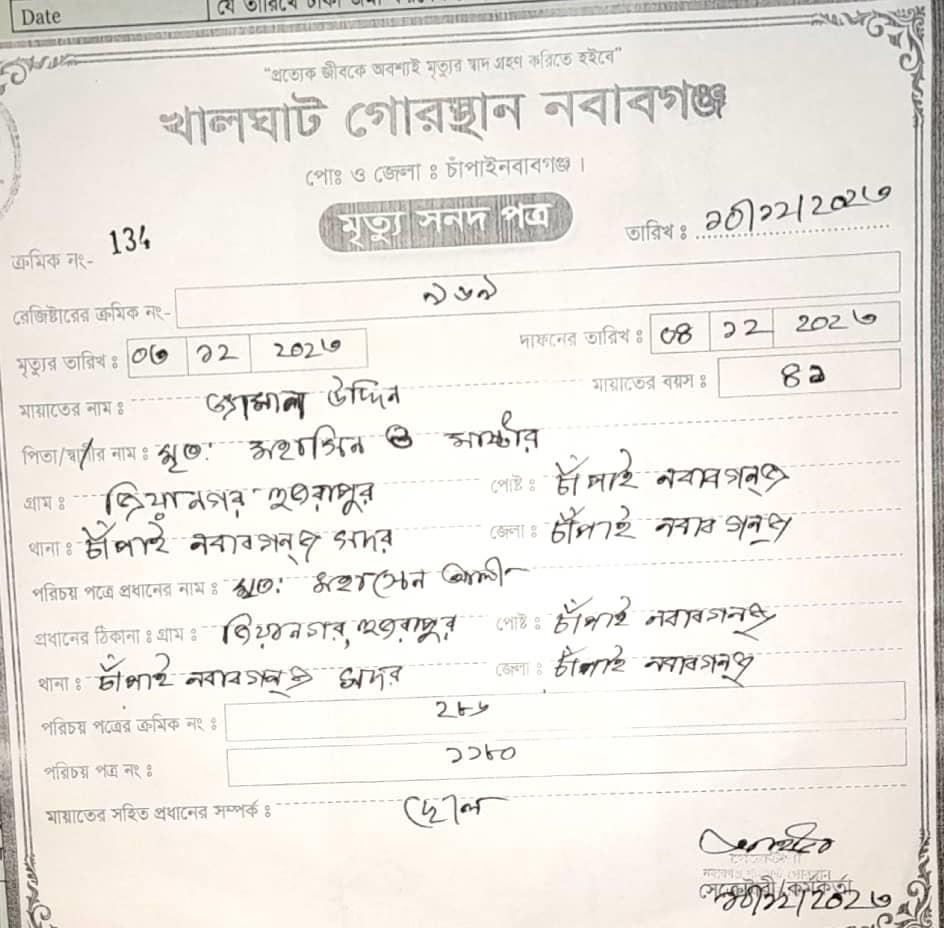 Date
যে তারিখে টাকা জমা
"প্রত্যেক জীবকে অবশ্যই মৃত্যুর স্বাদ গ্রহণ করিতে হইবে"
খালঘাট গোরস্থান নবাবগঞ্জ
পোঃ ও জেলা ঃ চাঁপাইনবাবগঞ্জ ।
মৃত্যু সনদ পত্র
ক্রমিক নং- 134 তারিখ ঃ ১০/১২/২০২৩
রেজিষ্টারের ক্রমিক নং- ৯৬৯
মৃত্যুর তারিখ ঃ ০৩ ১২ ২০২৩ দাফনের তারিখ ঃ ০৪ ১২ ২০২৩
মায়্যাতের নাম ঃ জামাল উদ্দিন মায়্যাতের বয়স ঃ ৪৯
পিতা/স্বামীর নাম ঃ মৃত: মহাসিন মাস্টার
গ্রাম ঃ জিয়ানগর হুজরাপুর পোষ্ট ঃ চাঁপাই নবাবগন্জ
থানা ঃ চাঁপাই নবাবগন্জ সদর জেলা ঃ চাঁপাই নবাবগন্জ
পরিচয় পত্রে প্রধানের নাম ঃ মৃত: মহাসেন আলী
প্রধানের ঠিকানা ঃ গ্রাম ঃ জিয়ানগর, হুজরাপুর পোষ্ট ঃ চাঁপাই নবাবগন্জ
থানা ঃ চাঁপাই নবাবগন্জ সদর জেলা ঃ চাঁপাই নবাবগন্জ
পরিচয় পত্রের ক্রমিক নং ঃ ২৮৬
পরিচয় পত্র নং ঃ ১১৮০
মায়্যাতের সহিত প্রধানের সম্পর্ক ঃ ছেলে
সেক্রেটারী/কর্মকর্তা
১০/১২/২০২৩